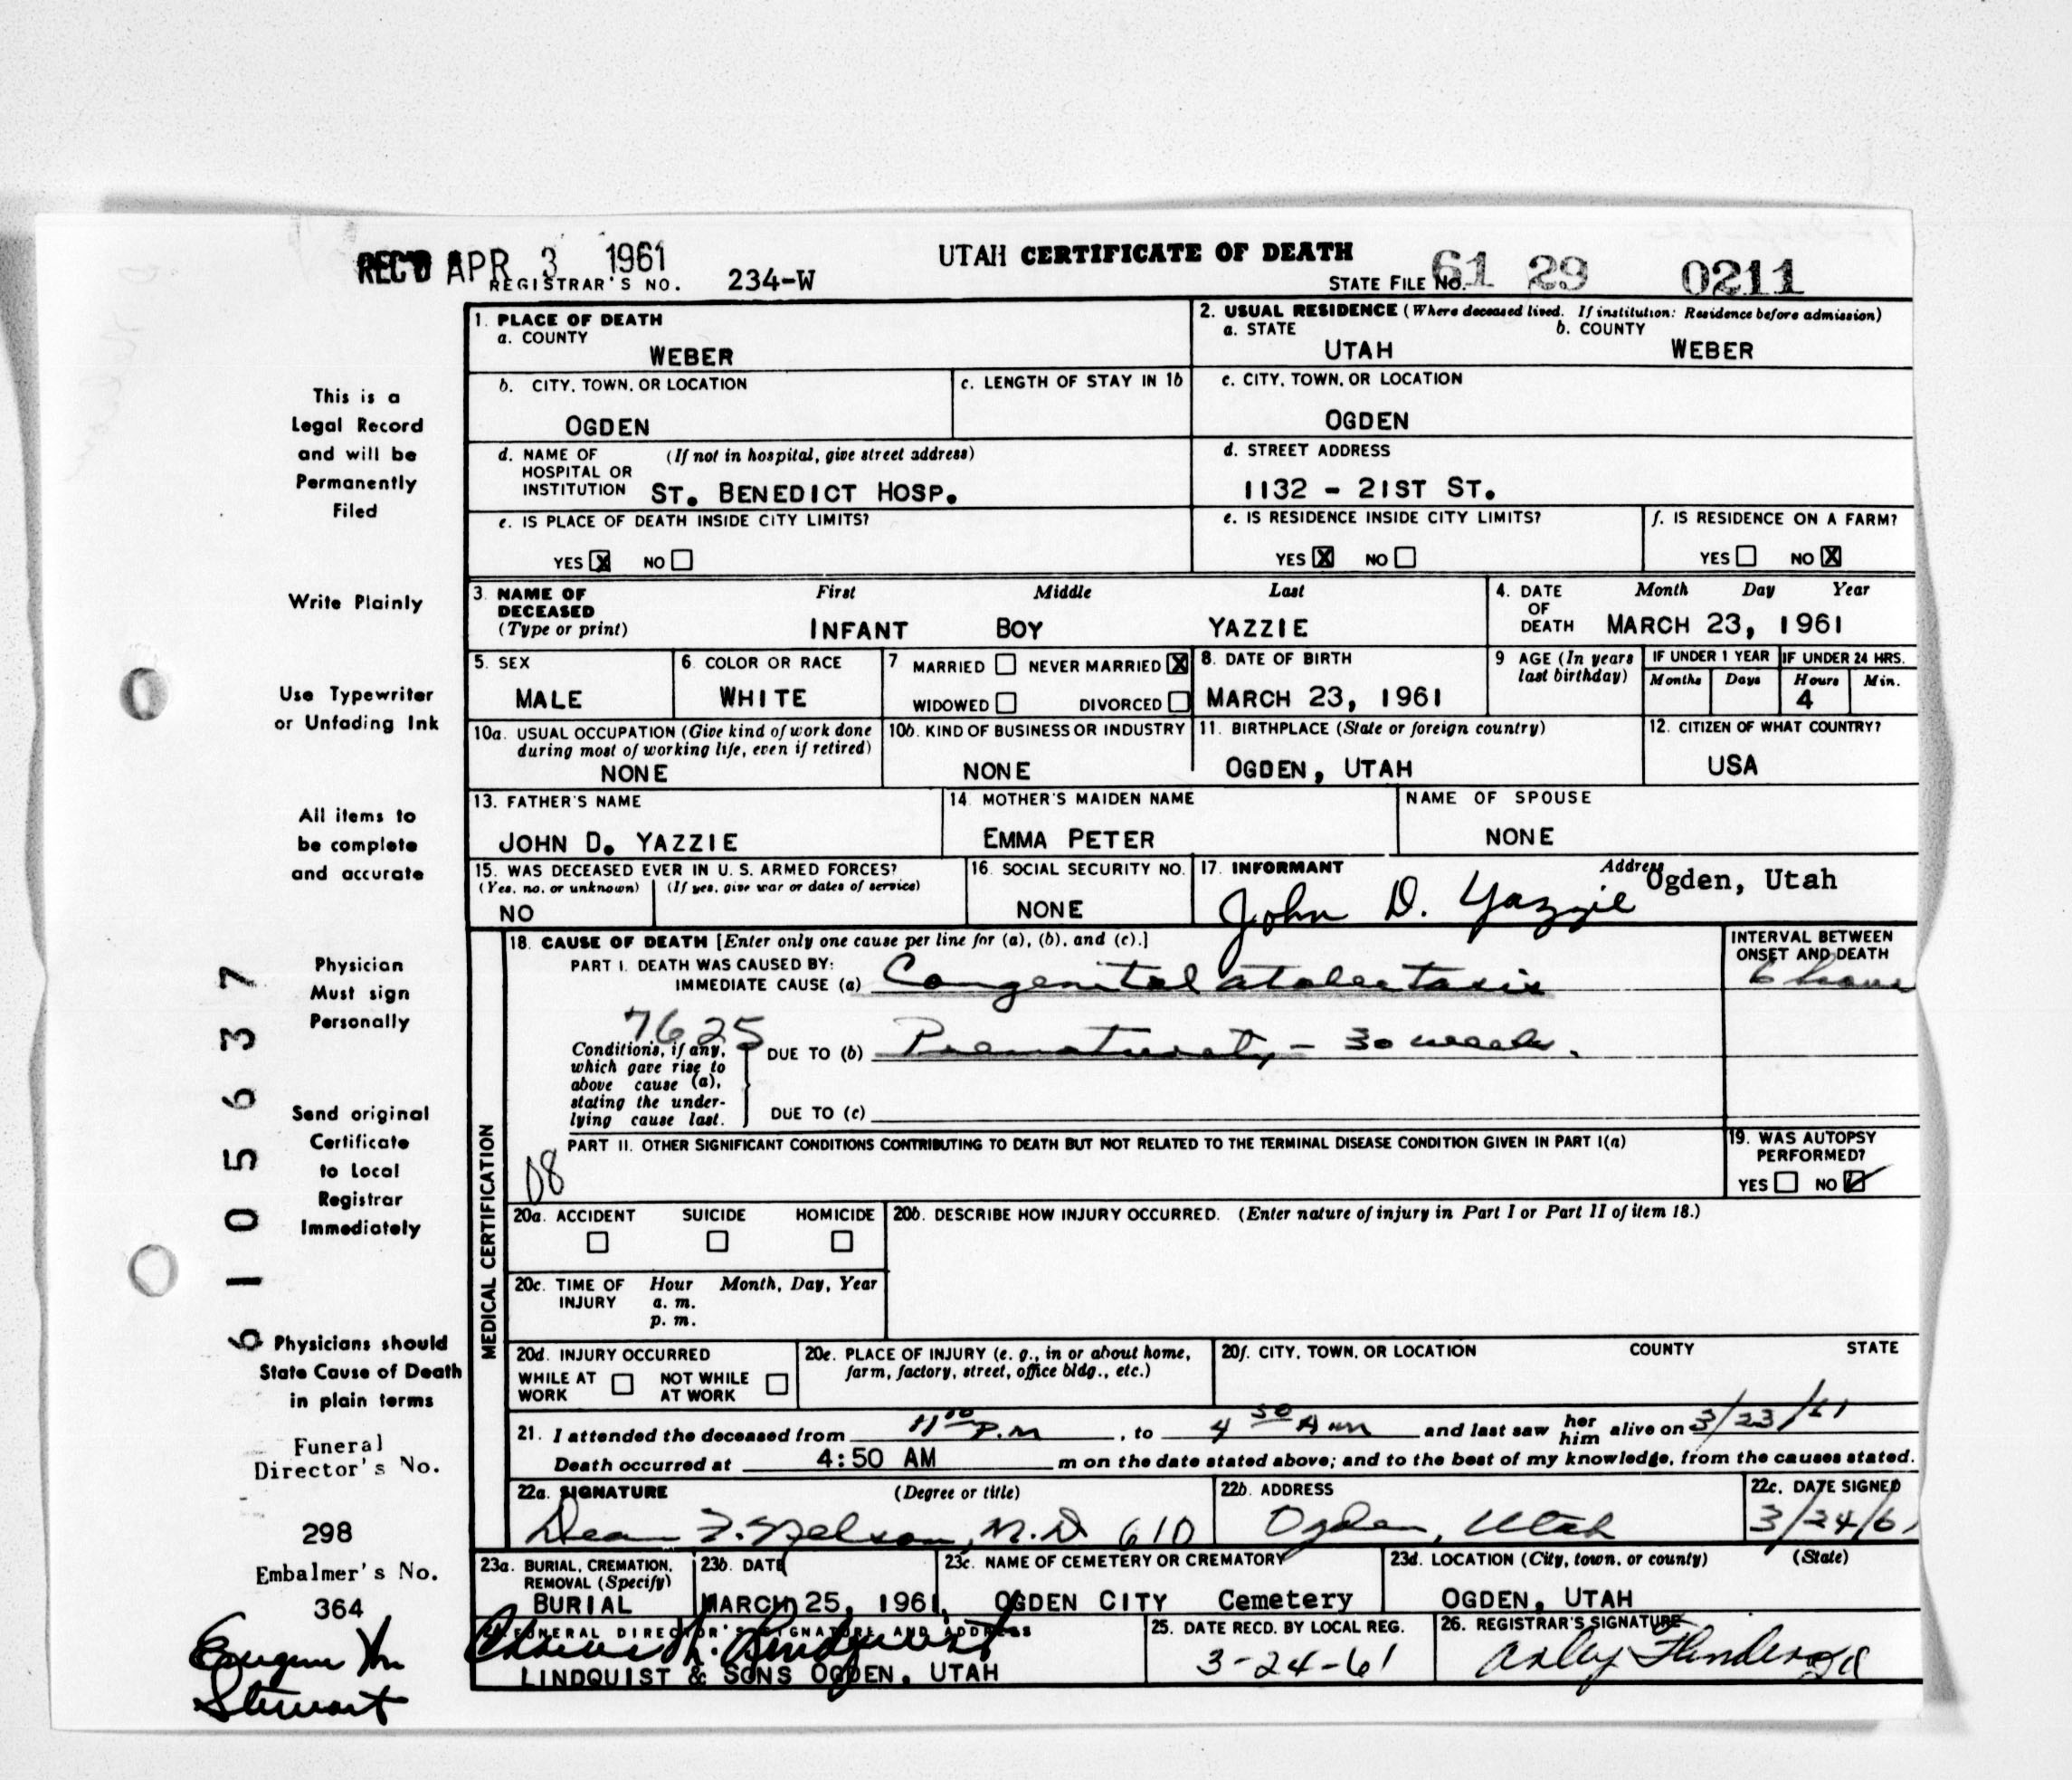 REC'D APR 3 1961
UTAH CERTIFICATE OF DEATH
REGISTRAR'S NO. 234-W
STATE FILE NO. 61 29 0211
1. PLACE OF DEATH
a. COUNTY
WEBER
2. USUAL RESIDENCE (Where deceased lived. If institution: Residence before admission)
a. STATE b. COUNTY
UTAH WEBER
b. CITY, TOWN, OR LOCATION
OGDEN
c. LENGTH OF STAY IN 1b
c. CITY, TOWN, OR LOCATION
OGDEN
d. NAME OF (If not in hospital, give street address)
HOSPITAL OR
INSTITUTION ST. BENEDICT HOSP.
d. STREET ADDRESS
1132 - 21ST ST.
e. IS PLACE OF DEATH INSIDE CITY LIMITS?
YES X NO
e. IS RESIDENCE INSIDE CITY LIMITS?
YES X NO
f. IS RESIDENCE ON A FARM?
YES NO X
3. NAME OF DECEASED (Type or print)
First Middle Last
INFANT BOY YAZZIE
4. DATE OF DEATH
Month Day Year
MARCH 23, 1961
5. SEX
MALE
6. COLOR OR RACE
WHITE
7 MARRIED NEVER MARRIED X
WIDOWED DIVORCED
8. DATE OF BIRTH
MARCH 23, 1961
9 AGE (In years last birthday)
IF UNDER 1 YEAR
Months Days
IF UNDER 24 HRS.
Hours Min.
4
10a. USUAL OCCUPATION (Give kind of work done
during most of working life, even if retired)
NONE
10b. KIND OF BUSINESS OR INDUSTRY
NONE
11. BIRTHPLACE (State or foreign country)
OGDEN, UTAH
12. CITIZEN OF WHAT COUNTRY?
USA
13. FATHER'S NAME
JOHN D. YAZZIE
14. MOTHER'S MAIDEN NAME
EMMA PETER
NAME OF SPOUSE
NONE
15. WAS DECEASED EVER IN U. S. ARMED FORCES?
(Yes, no, or unknown) (If yes, give war or dates of service)
NO
16. SOCIAL SECURITY NO.
NONE
17. INFORMANT Address
John D. Yazzie Ogden, Utah
MEDICAL CERTIFICATION
18. CAUSE OF DEATH [Enter only one cause per line for (a), (b), and (c).]
PART I. DEATH WAS CAUSED BY:
IMMEDIATE CAUSE (a) Congenital atelectasis
INTERVAL BETWEEN
ONSET AND DEATH
6 hours
7625
Conditions, if any,
which gave rise to
above cause (a),
stating the under-
lying cause last.
DUE TO (b) Prematurity - 30 weeks.
DUE TO (c)
PART II. OTHER SIGNIFICANT CONDITIONS CONTRIBUTING TO DEATH BUT NOT RELATED TO THE TERMINAL DISEASE CONDITION GIVEN IN PART I(a)
08
19. WAS AUTOPSY
PERFORMED?
YES NO
20a. ACCIDENT SUICIDE HOMICIDE
20b. DESCRIBE HOW INJURY OCCURRED. (Enter nature of injury in Part I or Part II of item 18.)
20c. TIME OF INJURY
Hour Month, Day, Year
a. m.
p. m.
20d. INJURY OCCURRED
WHILE AT WORK NOT WHILE AT WORK
20e. PLACE OF INJURY (e. g., in or about home,
farm, factory, street, office bldg., etc.)
20f. CITY, TOWN, OR LOCATION COUNTY STATE
21. I attended the deceased from 11 00 P.m, to 4 50 Am and last saw her him alive on 3/23/61
Death occurred at 4:50 AM m on the date stated above; and to the best of my knowledge, from the causes stated.
22a. SIGNATURE (Degree or title)
Dean F. Nelson, M.D 610
22b. ADDRESS
Ogden, Utah
22c. DATE SIGNED
3/24/61
23a. BURIAL, CREMATION,
REMOVAL (Specify)
BURIAL
23b. DATE
MARCH 25, 1961
23c. NAME OF CEMETERY OR CREMATORY
OGDEN CITY Cemetery
23d. LOCATION (City, town, or county) (State)
OGDEN, UTAH
FUNERAL DIRECTOR'S SIGNATURE AND ADDRESS
Lindquist
LINDQUIST & SONS OGDEN, UTAH
25. DATE RECD. BY LOCAL REG.
3-24-61
26. REGISTRAR'S SIGNATURE
This is a
Legal Record
and will be
Permanently
Filed
Write Plainly
Use Typewriter
or Unfading Ink
All items to
be complete
and accurate
Physician
Must sign
Personally
Send original
Certificate
to Local
Registrar
Immediately
Physicians should
State Cause of Death
in plain terms
Funeral
Director's No.
298
Embalmer's No.
364
Stewart
6 1 0 5 6 3 7